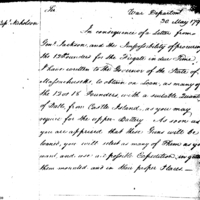 The
War Department
30 May 179
Capt. Nicholson
In consequence of a letter from
Genl. Jackson, and the Impossibility of procuring
the 12 Pounders for the Frigate in due time,
I have written to the Governor of the State of
Massachusetts, to obtain on loan, as many of
the 12 or 18 Pounders with a suitable Quantity
of Balls, from Castle Island, as you may
require for the upper Battery. As soon as
you are apprised that these Guns will be
loaned, you will select as many of them as you
want and use all possible Expedition in getting
them mounted and in their proper Places